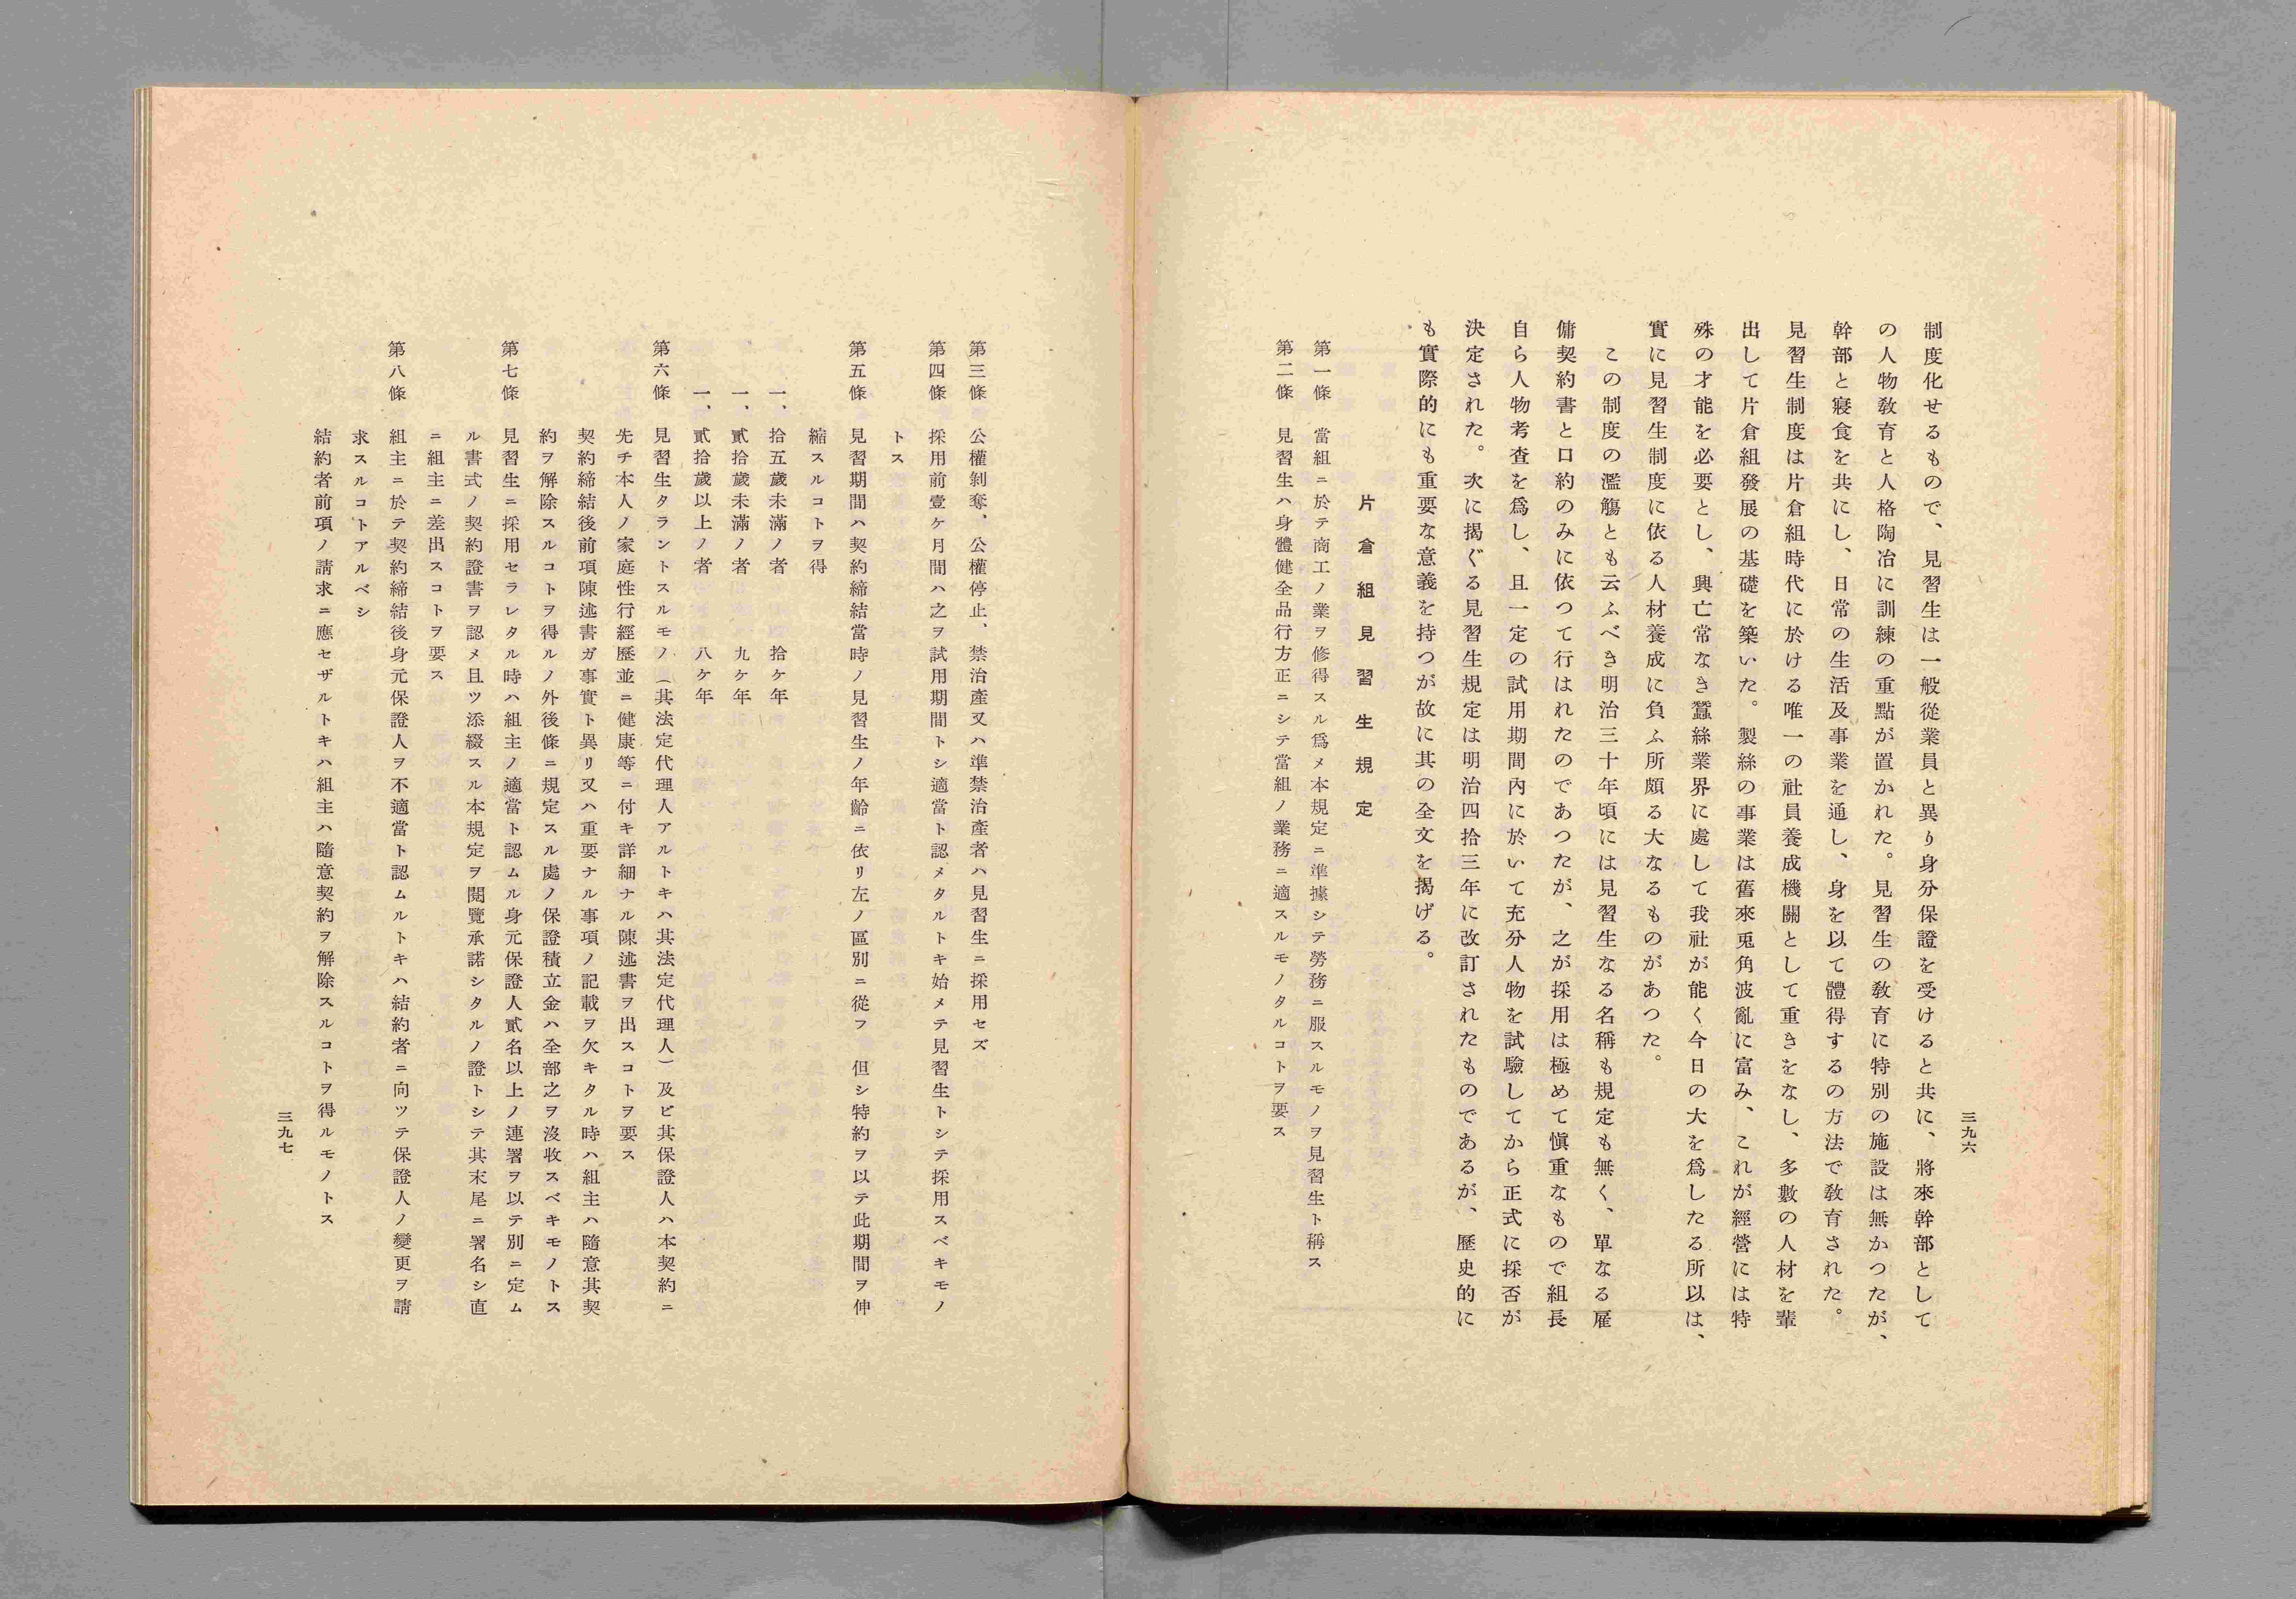 三九六
制度化せるもので、見習生は一般從業員と異り身分保證を受けると共に、將來幹部として
の人物敎育と人格陶冶に訓練の重點が置かれた。見習生の敎育に特別の施設は無かつたが、
幹部と寢食を共にし、日常の生活及事業を通し、身を以て體得するの方法で敎育された。
見習生制度は片倉組時代に於ける唯一の社員養成機關として重きをなし、多數の人材を輩
出して片倉組發展の基礎を築いた。製絲の事業は舊來兎角波亂に富み、これが經營には特
殊の才能を必要とし、興亡常なき蠶絲業界に處して我社が能く今日の大を爲したる所以は、
實に見習生制度に依る人材養成に負ふ所頗る大なるものがあつた。
この制度の濫觴とも云ふべき明治三十年頃には見習生なる名稱も規定も無く、單なる雇
傭契約書と口約のみに依つて行はれたのであつたが、之が採用は極めて愼重なもので組長
自ら人物考査を爲し、且一定の試用期間內に於いて充分人物を試驗してから正式に採否が
決定された。次に揭ぐる見習生規定は明治四拾三年に改訂されたものであるが、歷史的に
も實際的にも重要な意義を持つが故に其の全文を揭げる。
片倉組見習生規定
第一條 當組ニ於テ商工ノ業ヲ修得スル爲メ本規定ニ準據シテ勞務ニ服スルモノヲ見習生ト稱ス
第二條 見習生ハ身體健全品行方正ニシテ當組ノ業務ニ適スルモノタルコトヲ要ス
第三條 公權剝奪、公權停止、禁治產又ハ準禁治產者ハ見習生ニ採用セズ
第四條 採用前壹ケ月間ハ之ヲ試用期間トシ適當ト認メタルトキ始メテ見習生トシテ採用スベキモノ
トス
第五條 見習期間ハ契約締結當時ノ見習生ノ年齡ニ依リ左ノ區別ニ從フ 但シ特約ヲ以テ此期間ヲ伸
縮スルコトヲ得
一、拾五歲未滿ノ者 拾ケ年
一、貳拾歲未滿ノ者 九ケ年
一、貳拾歲以上ノ者 八ケ年
第六條 見習生タラントスルモノ(其法定代理人アルトキハ其法定代理人)及ビ其保證人ハ本契約ニ
先チ本人ノ家庭性行經歷並ニ健康等ニ付キ詳細ナル陳述書ヲ出スコトヲ要ス
契約締結後前項陳述書ガ事實ト異リ又ハ重要ナル事項ノ記載ヲ欠キタル時ハ組主ハ隨意其契
約ヲ解除スルコトヲ得ルノ外後條ニ規定スル處ノ保證積立金ハ全部之ヲ沒收スベキモノトス
第七條 見習生ニ採用セラレタル時ハ組主ノ適當ト認ムル身元保證人貳名以上ノ連署ヲ以テ別ニ定ム
ル書式ノ契約證書ヲ認メ且ツ添綴スル本規定ヲ閱覽承諾シタルノ證トシテ其末尾ニ署名シ直
ニ組主ニ差出スコトヲ要ス
第八條 組主ニ於テ契約締結後身元保證人ヲ不適當ト認ムルトキハ結約者ニ向ツテ保證人ノ變更ヲ請
求スルコトアルベシ
結約者前項ノ請求ニ應セザルトキハ組主ハ隨意契約ヲ解除スルコトヲ得ルモノトス
三九七